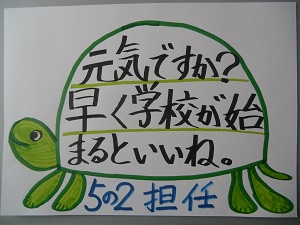 元気ですか?
早く学校が始
まるといいね。
5の2 担任